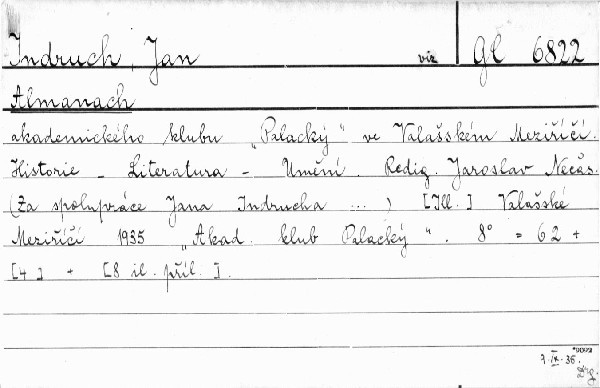 Indruch, Jan viz Gl 6822
Almanach
akademického klubu „Palacký“ ve Valašském Meziříčí.
Historie – Literatura – Umění. Redig. Jaroslav Nečas.
(Za spolupráce Jana Indrucha ...) [Ill.] Valašské
Meziříčí 1935 „Akad. klub Palacký“. 8° = 62 +
[4] + [8 il. příl.].
7.IX.36.